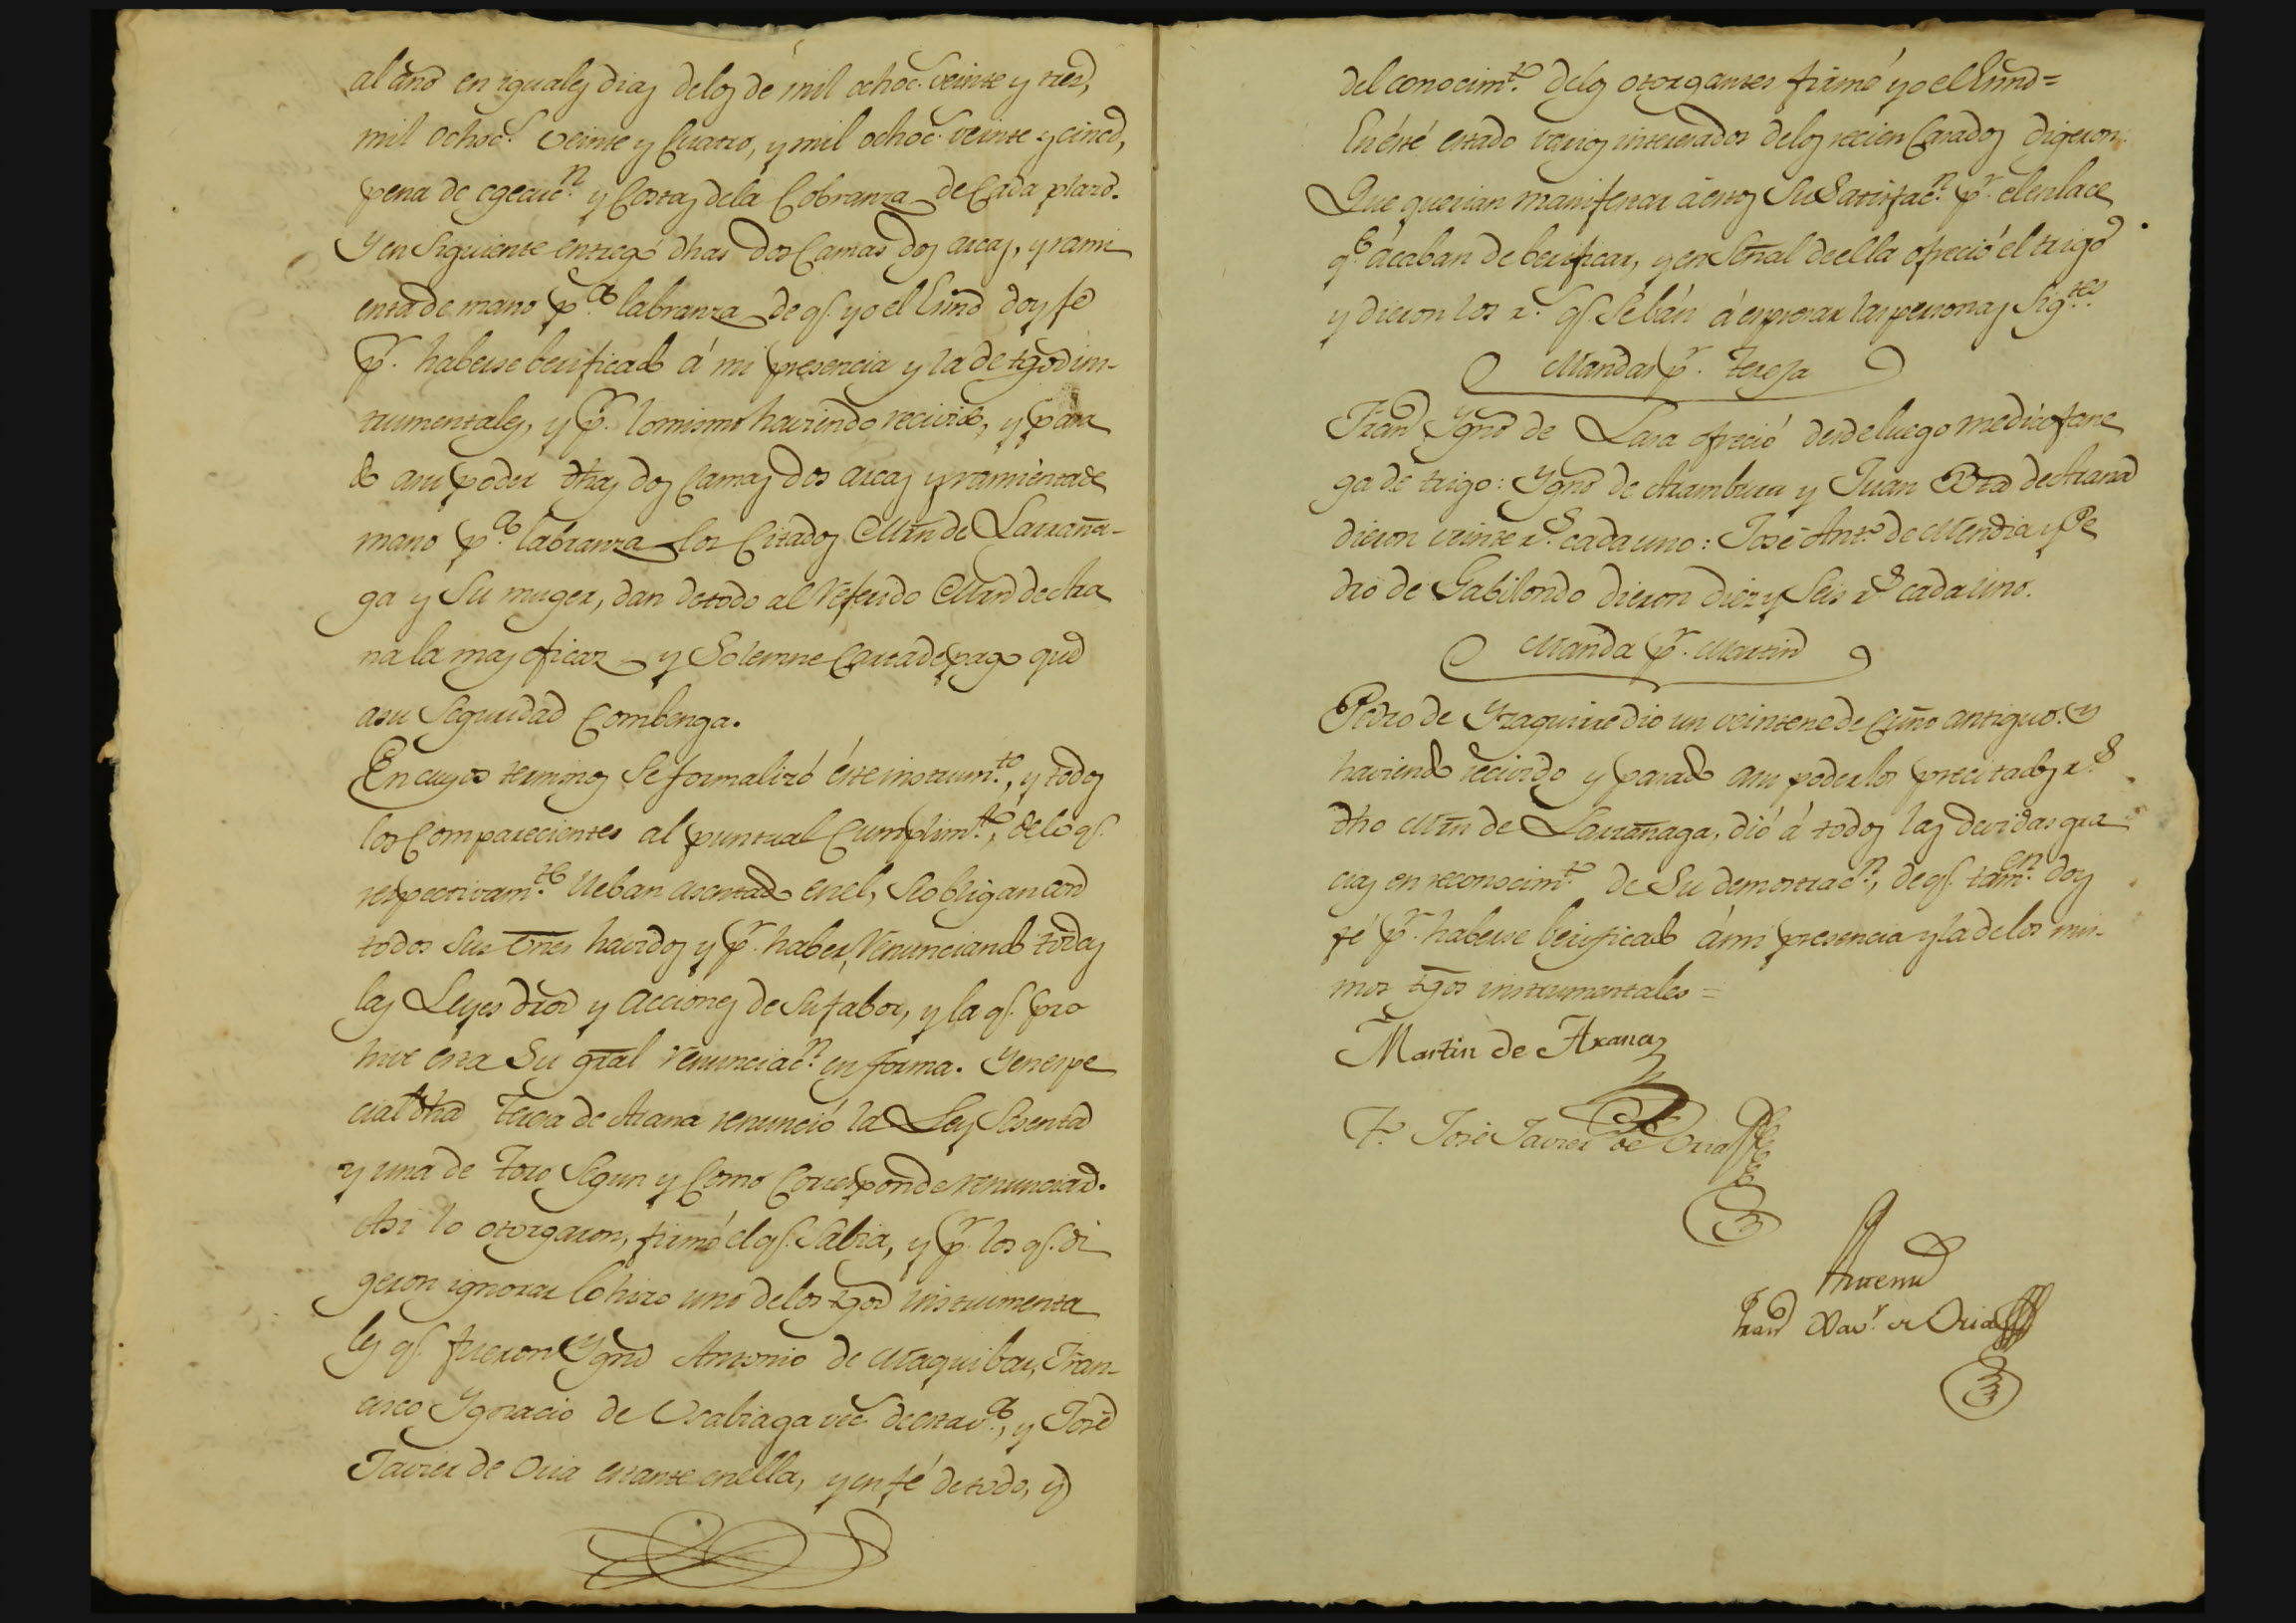 al año en iguales dias delos de mil ochoc.s veinte y tres,
mil ochoc.s veinte y Cuatro, y mil ochoc.s veinte y cinco,
pena de egecuc.n y Costas dela Cobranza de Cada plazo.
Y en Siguiente entregó dhas dos Camas dos arcas, y rami
enta de mano p.a labranza de q.e yo el Essno doy fe
p.r haberse berificado á mi presencia y la de tgos ins-
trumentales, y p.r lo mismo haviendo recivido, y pasa
do asu poder dhas dos Camas dos arcas y ramienta de
mano p.a labranza los Citados Mrn de Larraña-
ga y Su muger, dan de todo al Referido Mrn de Ara
na la mas eficaz y Solemne Carta de pago que
asu Seguridad Combenga.
En cuyos terminos Se formalizó éste instrum.to, y todos
los Comparecientes al puntual Cumplim.to, de lo q.e
respectivam.te lleban asentado en el, Se obligan con
todos Sus vnes havidos y p.r haber, Renunciando todas
las Leyes dros y acciones de Su fabor, y la q.e pro
hive esta Su gral renunciac.n en forma. Y en espe
cial dha Teresa de Arana renunció la Ley Sesenta
y una de Toro Segun y Como Corresponde renunciar.
Asi lo otorgaron, firmó el q.e Sabia, y p.r los q.e di
geron ignorar lo hizo uno de los tgos instrumenta
les q.e fueron Ygno Antonio de Maquibar, Fran-
cisco Ygnacio de Usabiaga vec.s de esta v.a, y José
Javier de Oria estante en ella, y en fé de todo, y
del conocim.to delos otorgantes firmé yo el Essno=
En éste estado varios interesados delos recien Casados digeron:
Que querian manifestar á estos Su Satisfac.n p.r el enlace
q.e acaban de berificar, y en Señal de ella ofreció el trigo
y dieron los r.s q.e Se bán á espresar las personas Sig.tes
Mandas p.r Teresa
Fran.co Ygno de Lasa ofreció desde luego media fane
ga de trigo: Ygno de Aramburu y Juan Bta de Arana
dieron veinte r.s cada uno: José Ant.o de Mendia y Pe
dro de Gabilondo dieron diez y Seis r.s cada uno.
Manda p.r Martin
Pedro de Yzaguirre dio un veinteno de Cuño antiguo. Y
haviendo recivido y pasado asu poder los precitados r.s
dho Mrn de Larrañaga, dió á todos las devidas gra
cias en reconocim.to de Su demostrac.n, de q.e tam.en doy
fé p.r haberse berificado á mi presencia y la de los mis-
mos tgos instrumentales=
Martin de Arana
T.o José Javier de Oria
Ante mi
Fran.co Xav.r de Oria